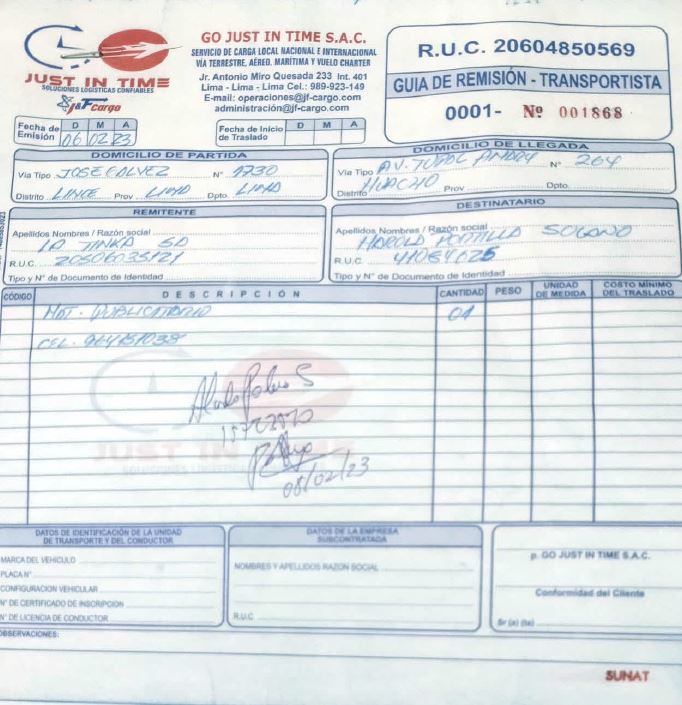 JUST IN TIME
SOLUCIONES LOGISTICAS CONFIABLES
J&F cargo
GO JUST IN TIME S.A.C.
SERVICIO DE CARGA LOCAL NACIONAL E INTERNACIONAL
VÍA TERRESTRE, AÉREO, MARÍTIMA Y VUELO CHARTER
Jr. Antonio Miro Quesada 233 Int. 401
Lima - Lima - Lima Cel.: 989-923-149
E-mail: operaciones@jf-cargo.com
administración@jf-cargo.com
R.U.C. 20604850569
GUIA DE REMISIÓN - TRANSPORTISTA
0001- Nº 001868
Fecha de Emisión D M A
06 02 23
Fecha de Inicio de Traslado D M A
DOMICILIO DE PARTIDA
Vía Tipo JOSE GALVEZ Nº 1730
Distrito LINCE Prov LIMA Dpto. LIMA
DOMICILIO DE LLEGADA
Vía Tipo AV. Nº 264
Distrito HUACHO Prov Dpto.
REMITENTE
Apellidos Nombres / Razón social
LA TINKA SA
R.U.C. 20506035121
Tipo y N° de Documento de Identidad
DESTINATARIO
Apellidos Nombres / Razón social
HAROLD PORTILLA
R.U.C.
Tipo y N° de Documento de Identidad
CÓDIGO DESCRIPCIÓN CANTIDAD PESO UNIDAD DE MEDIDA COSTO MÍNIMO DEL TRASLADO
MAT. PUBLICITARIO 01
CEL. 964151038
JUST IN TIME
08/02/23
DATOS DE IDENTIFICACIÓN DE LA UNIDAD
DE TRANSPORTE Y DEL CONDUCTOR
MARCA DEL VEHICULO
PLACA N°
CONFIGURACION VEHICULAR
N° DE CERTIFICADO DE INSCRIPCION
N° DE LICENCIA DE CONDUCTOR
DATOS DE LA EMPRESA
SUBCONTRATADA
NOMBRES Y APELLIDOS RAZON SOCIAL
R.U.C
p. GO JUST IN TIME S.A.C.
Conformidad del Cliente
Sr (a) (ta)
OBSERVACIONES:
SUNAT